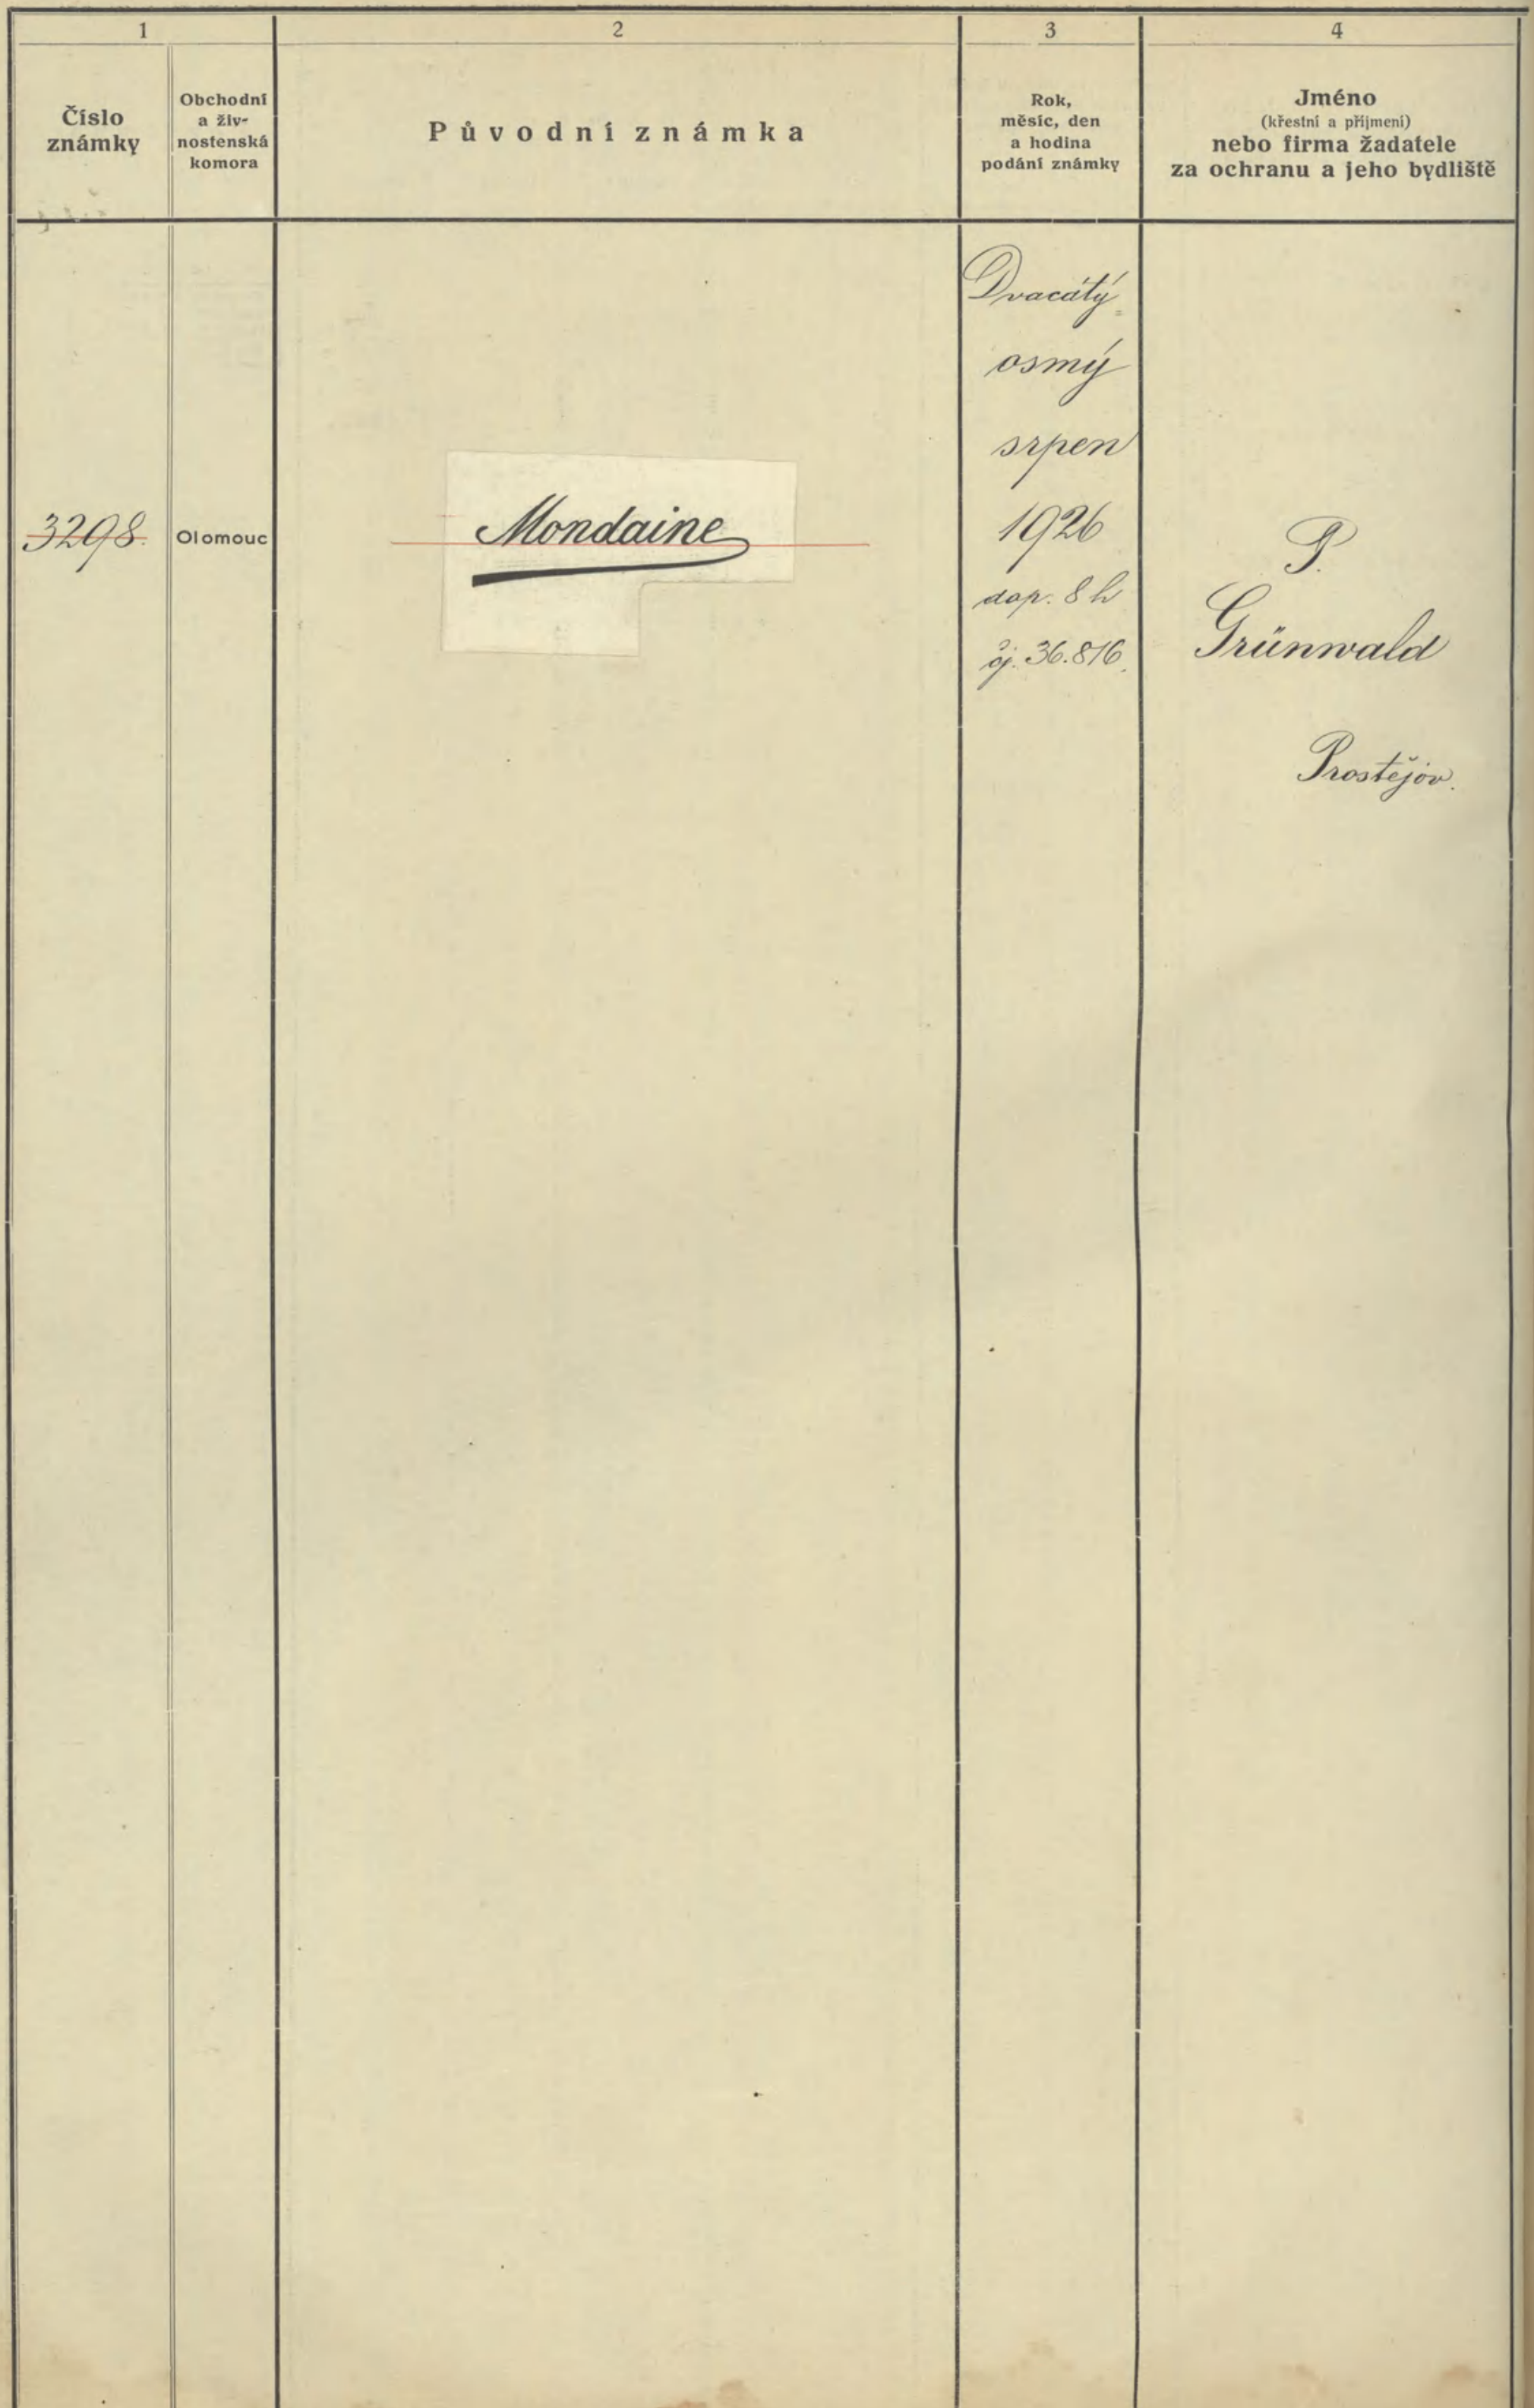 1
2
3
4
Číslo
známky
Obchodní
a živ-
nostenská
komora
Původní známka
Rok,
měsíc, den
a hodina
podání známky
Jméno
(křestní a příjmení)
nebo firma žadatele
za ochranu a jeho bydliště
3298.
Olomouc
Mondaine
Dvacátý
osmý
srpen
1926
dop. 8 h
čj. 36.816.
P.
Grünwald
Prostějov.